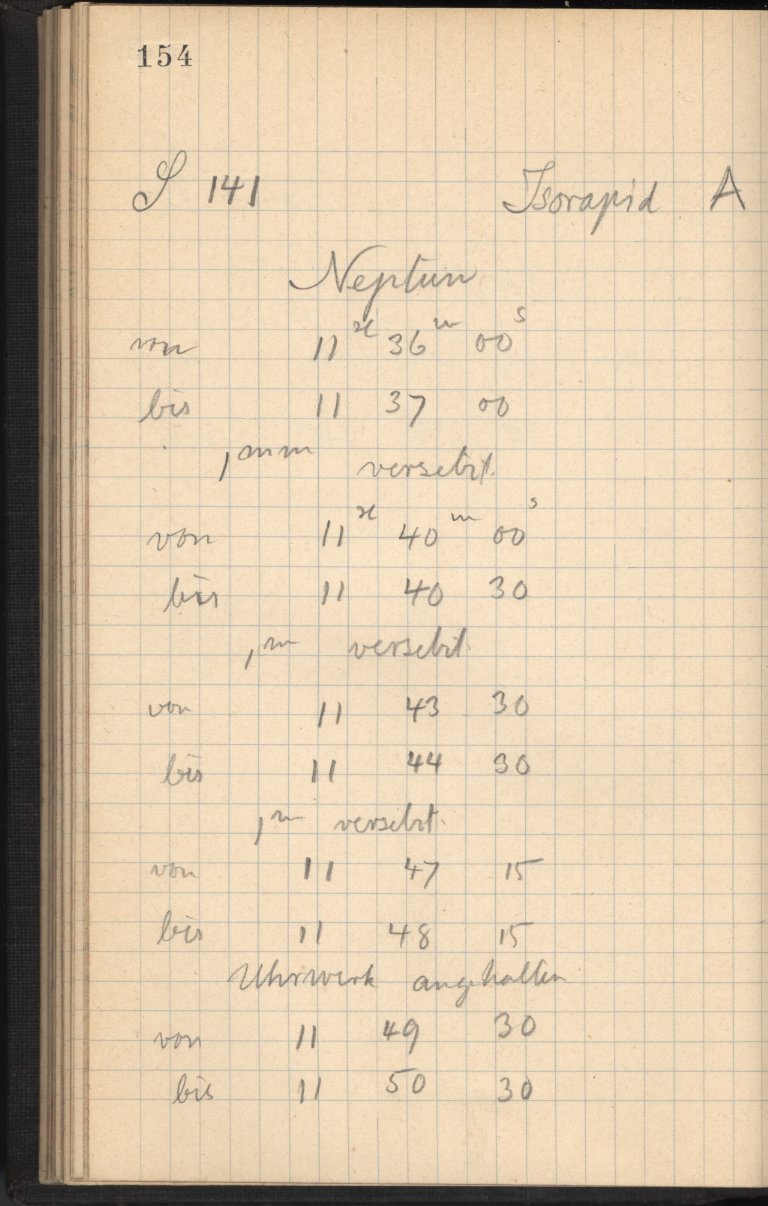 154
S 141 Isorapid A
Neptun
von 11 36 m 00 s
bis 11 37 00
1 mm versetzt.
von 11 40 m 00 s
bis 11 40 30
1 m versetzt
von 11 43 30
bis 11 44 30
1 m versetzt.
von 11 47 15
bis 11 48 15
Uhrwerk angehalten
von 11 49 30
bis 11 50 30